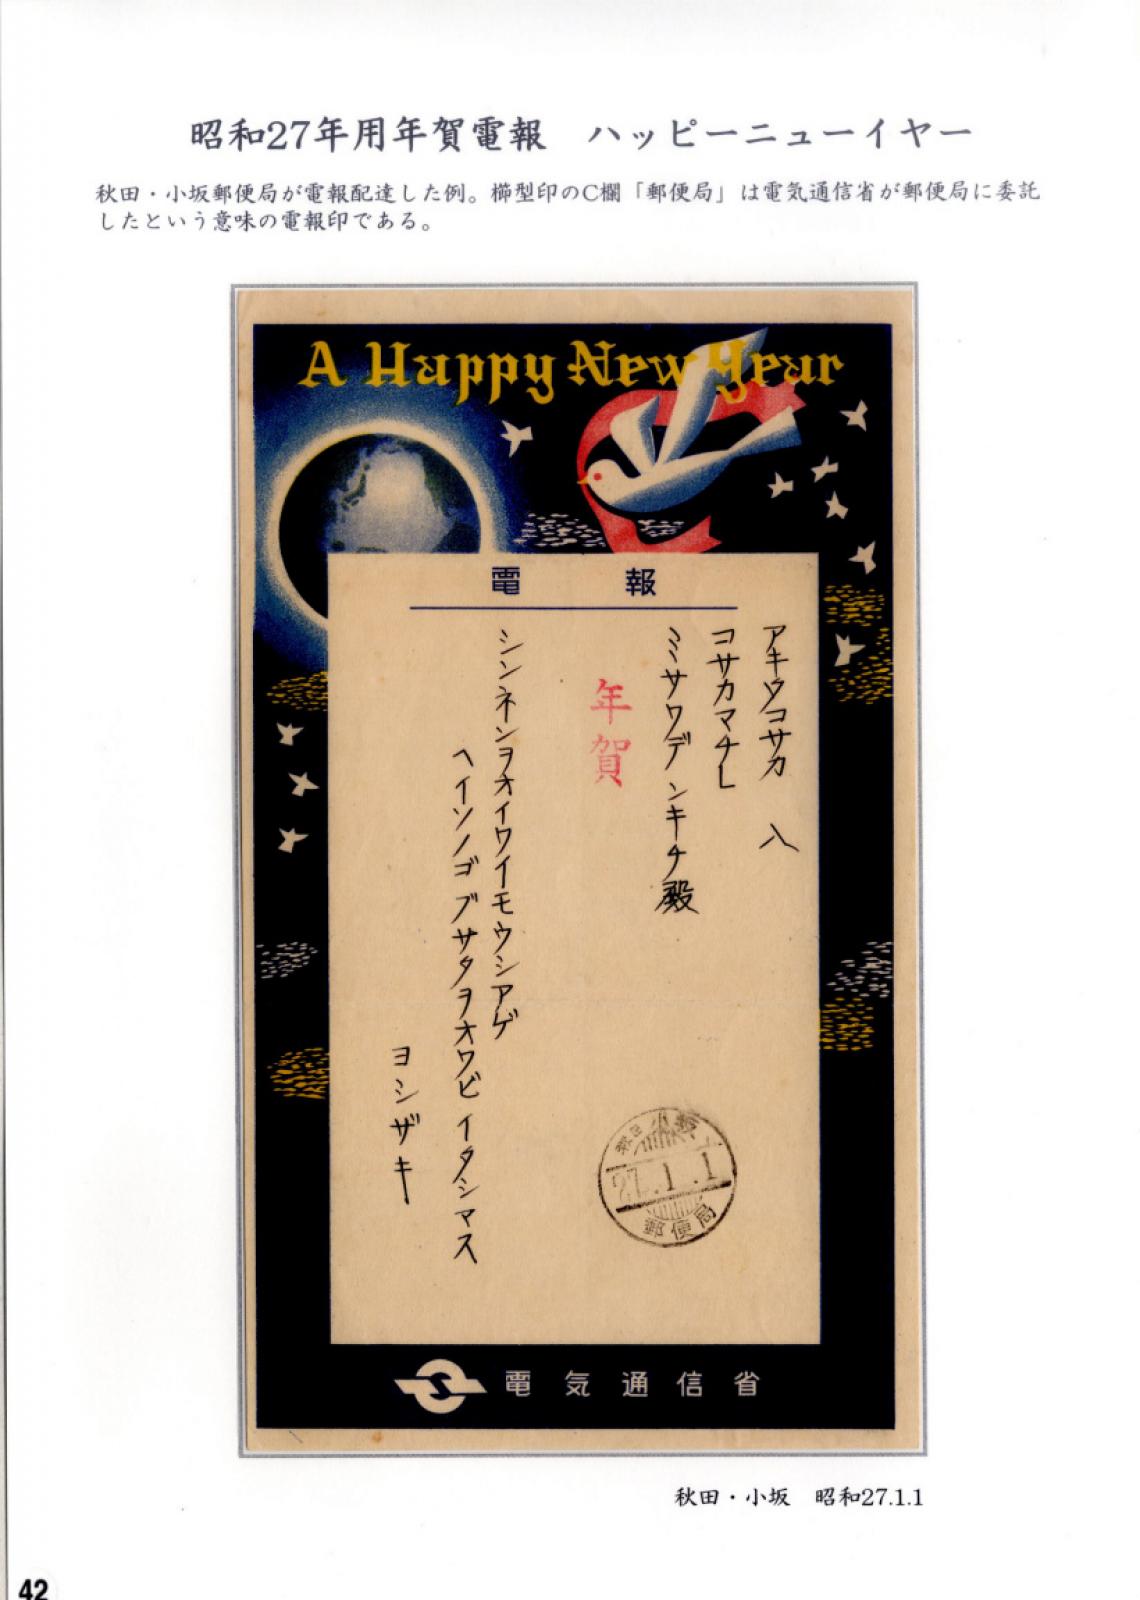 昭和27年用年賀電報　ハッピーニューイヤー
秋田・小坂郵便局が電報配達した例。櫛型印のC欄「郵便局」は電気通信省が郵便局に委託
したという意味の電報印である。
A Happy New Year
電報
アキタコサカ 八
コサカマチL
ミミサワデンキチ殿
年賀
シンネンヲオイワイモウシアゲ
ヘイソノゴブサタヲオワビイタシマス
ヨシザキ
小坂
27.1.1
郵便局
電気通信省
秋田・小坂　昭和27.1.1
42